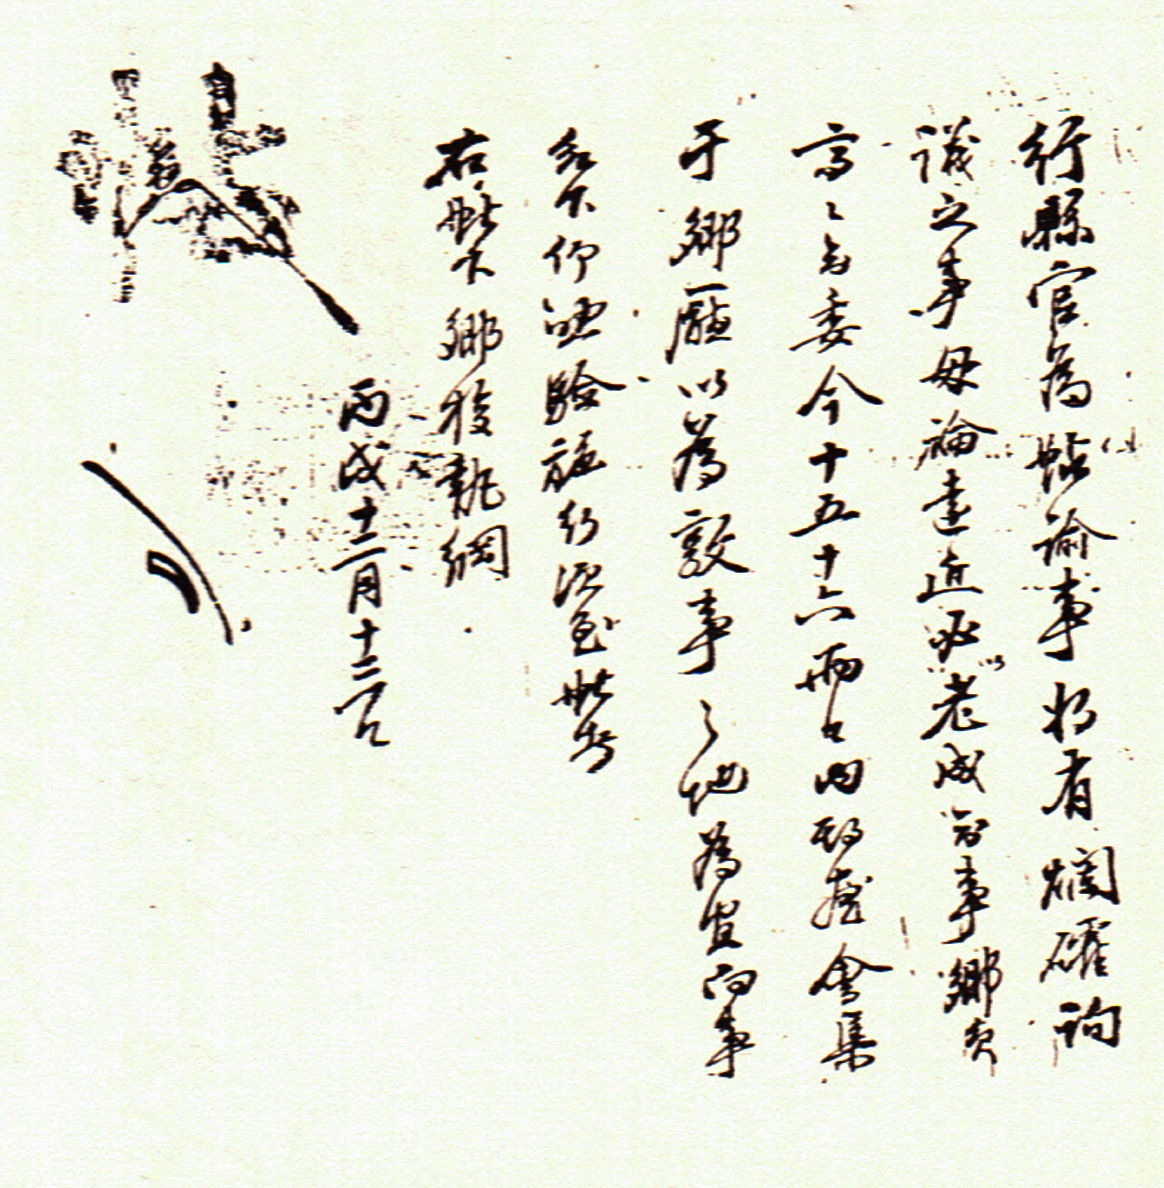 行縣官爲帖諭事將有爛確詢
議之事毋論遠近必以老成知事鄉員
高々知委今十五十六兩日內 會集
于鄉廳以爲敦事之地爲宜向事
知下仰照驗施行須至帖者
右帖下鄉校執綱
丙戌十二月十二日
帖